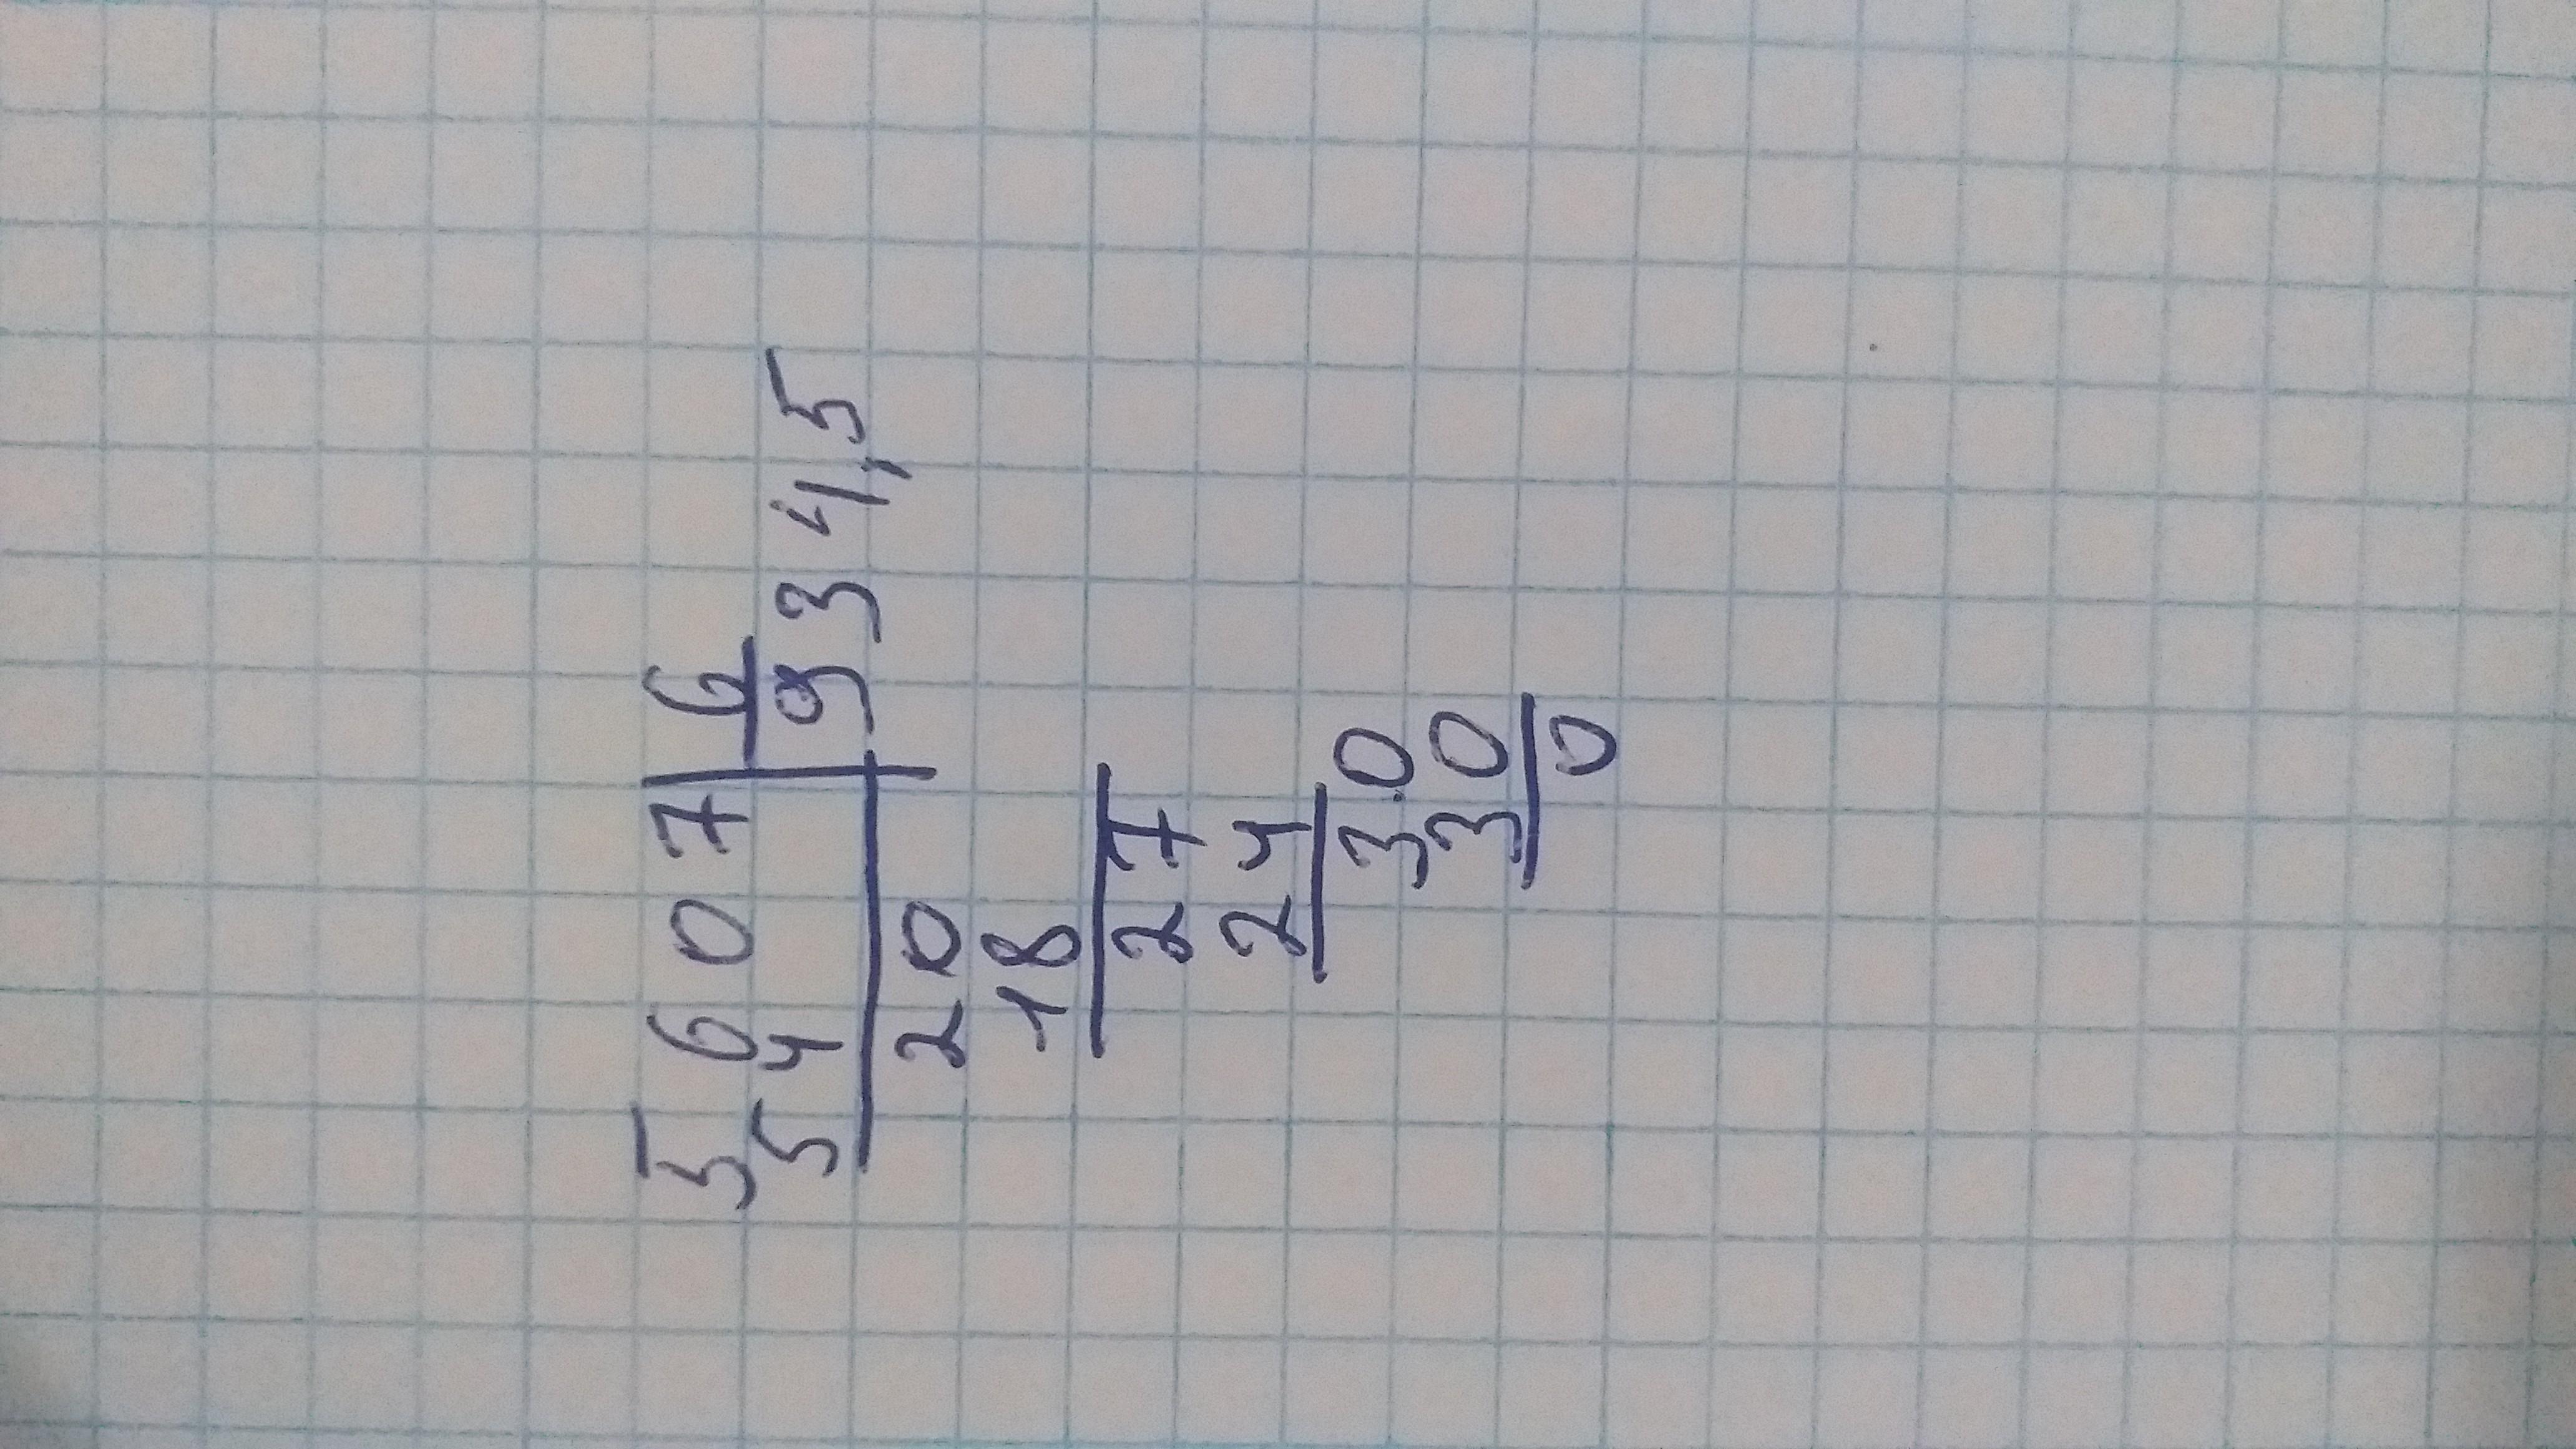 5607 6
54 934,5
20
18
27
24
3.0
30
0